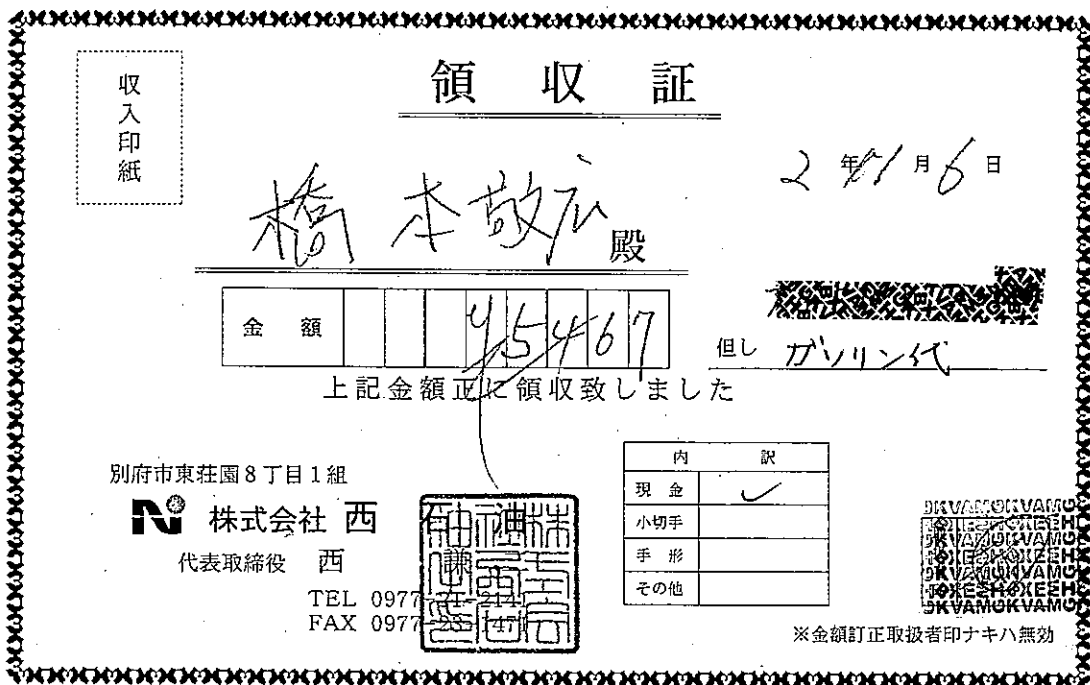 収入印紙
領収証
2年11月6日
橋本敬広殿
金額 ¥5467
但し ガソリン代
上記金額正に領収致しました
別府市東荘園8丁目1組
株式会社 西石油
代表取締役 西 謙
TEL 0977-21-214
FAX 0977-23-147
内訳
現金 ✓
小切手
手形
その他
※金額訂正取扱者印ナキハ無効